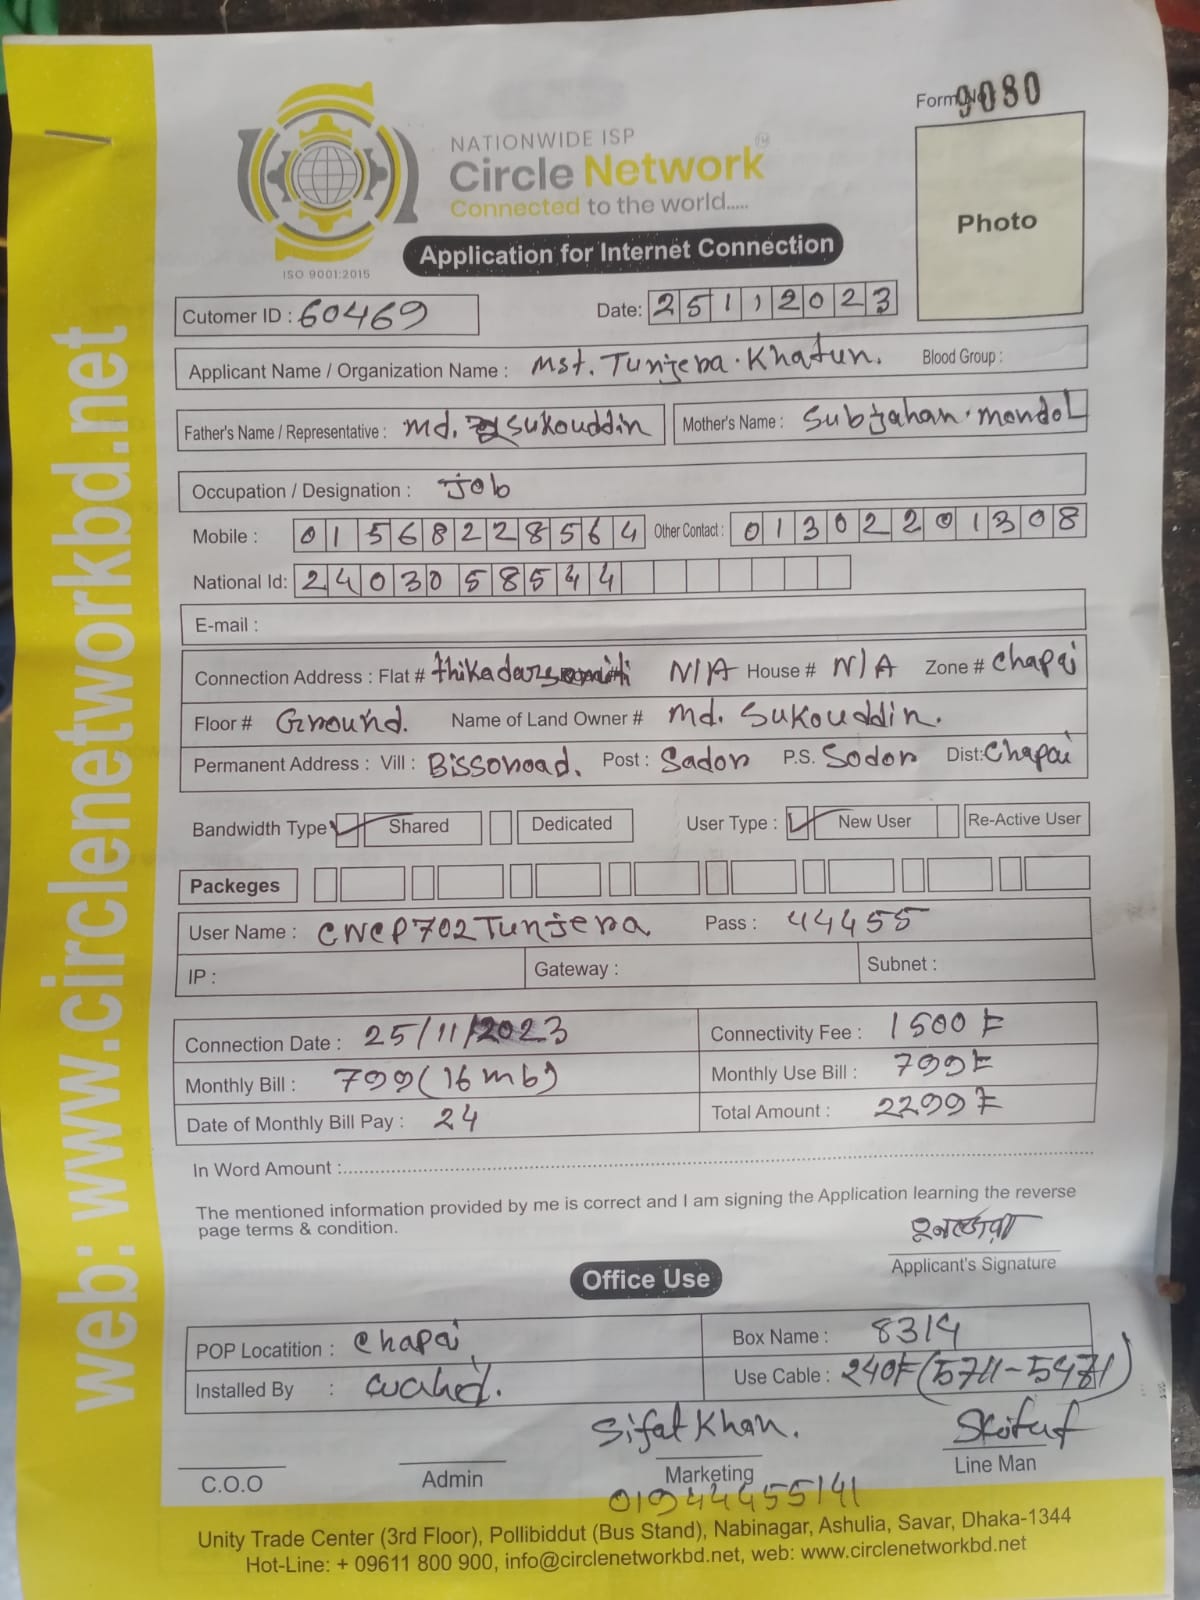 Form No. 9080
NATIONWIDE ISP
Circle Network
Connected to the world.....
ISO 9001:2015
Application for Internet Connection
Photo
Cutomer ID : 60469 Date: 25112023
Applicant Name / Organization Name : Mst. Tunjera. Khatun. Blood Group :
Father's Name / Representative : Md. Sukouddin Mother's Name : Subjahan. Mondol
Occupation / Designation : Job
Mobile : 01568228564 Other Contact : 01302201308
National Id: 2403058544
E-mail :
Connection Address : Flat # N/A House # N/A Zone # Chapai
Floor # Ground. Name of Land Owner # Md. Sukouddin.
Permanent Address : Vill : Bissoroad. Post : Sador P.S. Sodor Dist: Chapai
Bandwidth Type Shared Dedicated User Type : New User Re-Active User
Packeges
User Name : CNCP702Tunjera Pass : 44455
IP : Gateway : Subnet :
Connection Date : 25/11/2023 Connectivity Fee : 1500 ₣
Monthly Bill : 799 (16 mb) Monthly Use Bill : 799 ₣
Date of Monthly Bill Pay : 24 Total Amount : 2299 ₣
In Word Amount :
The mentioned information provided by me is correct and I am signing the Application learning the reverse
page terms & condition.
Applicant's Signature
Office Use
POP Locatition : Chapai Box Name : 8314
Installed By : Wahid. Use Cable : 240F (5711-5471)
Sifat Khan.
C.O.O Admin Marketing Line Man
01944455141
Unity Trade Center (3rd Floor), Pollibiddut (Bus Stand), Nabinagar, Ashulia, Savar, Dhaka-1344
Hot-Line: + 09611 800 900, info@circlenetworkbd.net, web: www.circlenetworkbd.net
web: www.circlenetworkbd.net